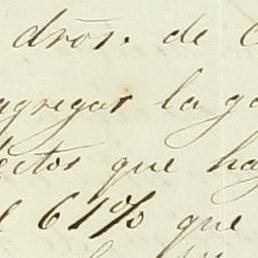 drōs. de
agregar la ga
ectos que ha
l 61% que